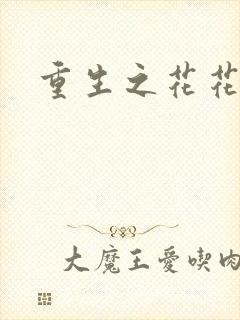 重生之花花
大魔王愛喫肉